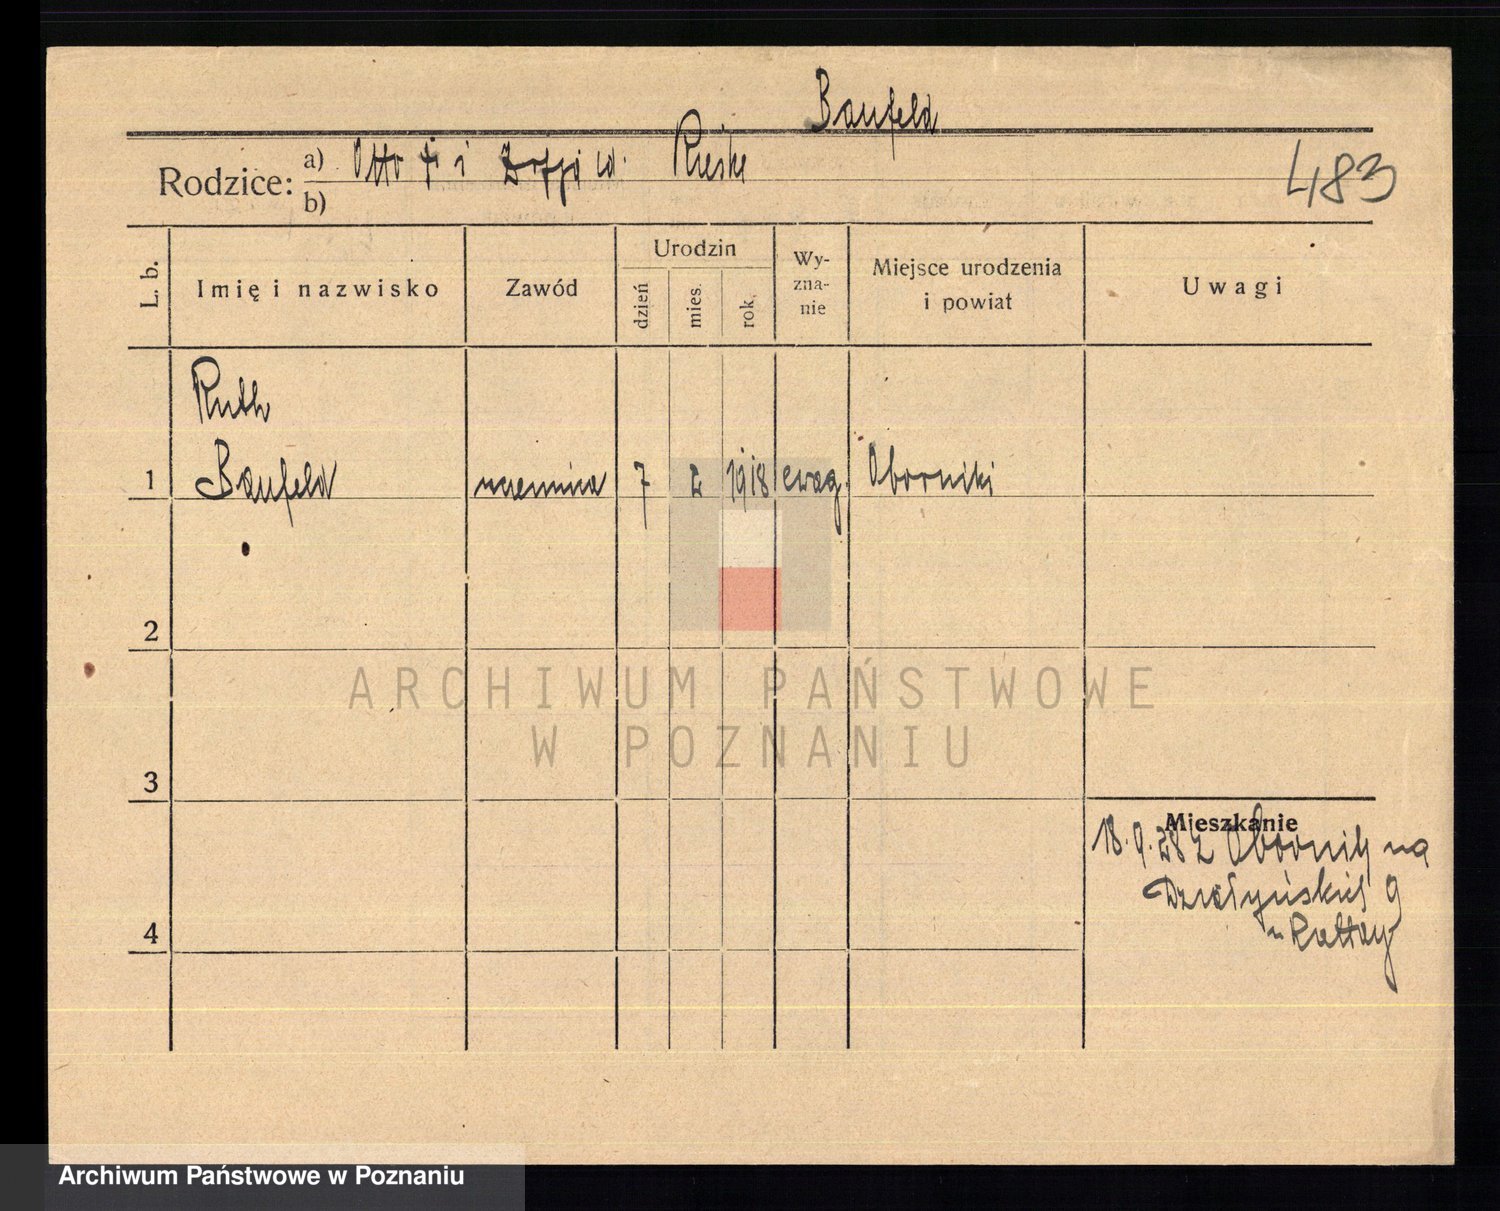 Baufeld
Rodzice: a) Otto † i Zofja w. Rieske
b)
483
L. b.
Imię i nazwisko
Zawód
Urodzin
dzień
mies.
rok.
Wy-
zna-
nie
Miejsce urodzenia
i powiat
Uwagi
Ruth
1 Baufeld uczennica 7 2 1918 ewag. Oborniki
2
ARCHIWUM PAŃSTWOWE
W POZNANIU
3
Mieszkanie
18.9.28 z Obornik na
Działyńskich 9
u Rattay
4
Archiwum Państwowe w Poznaniu